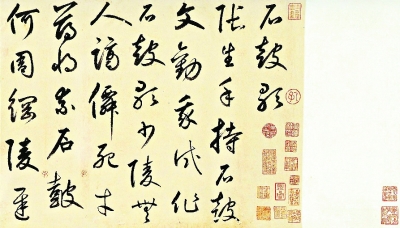 石鼓歌
張生手持石鼓
文勸我試作
石鼓歌少陵無
人謫僊死才
薄將奈石鼓
何周綱陵遲